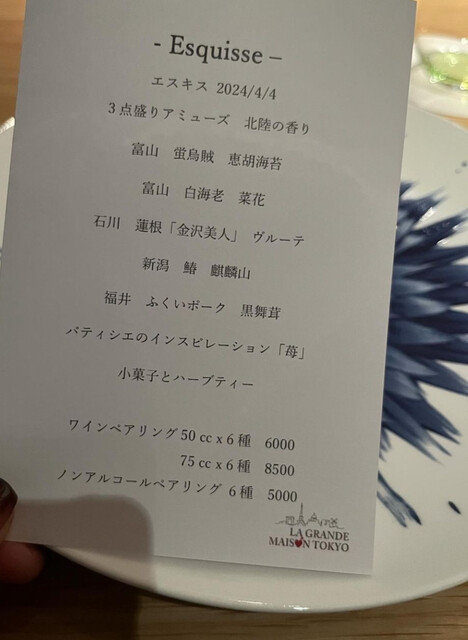 - Esquisse –
エスキス 2024/4/4
３点盛りアミューズ 北陸の香り
富山 蛍烏賊 恵胡海苔
富山 白海老 菜花
石川 蓮根「金沢美人」 ヴルーテ
新潟 鰆 麒麟山
福井 ふくいポーク 黒舞茸
パティシエのインスピレーション「苺」
小菓子とハーブティー
ワインペアリング 50 cc x 6 種 6000
75 cc x 6 種 8500
ノンアルコールペアリング 6 種 5000
LA GRANDE
MAISON TOKYO